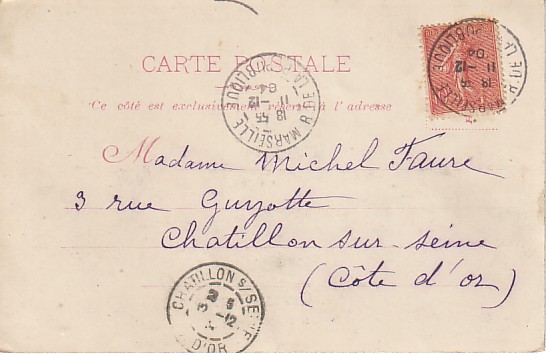 CARTE POSTALE
Ce côté est exclusivement réservé à l'adresse
MARSEILLE
R. DE LA REPUBLIQUE
18 55
11 -12
04
MARSEILLE
R. DE LA REPUBLIQUE
18 55
11 -12
04
Madame Michel Faure
3 rue Guyotte
Chatillon sur-seine
(Côte d'or)
CHATILLON S/ SEINE
D'OR